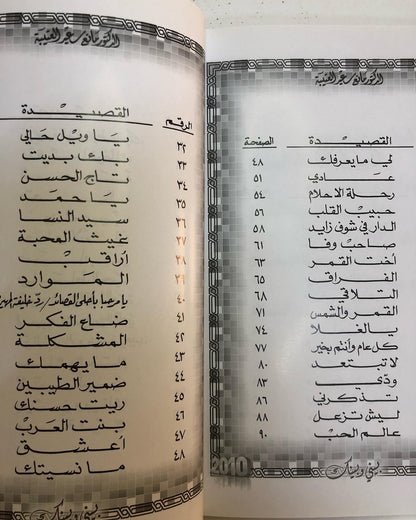 الدكتور مانع سعيد العتيبة
القصيدة الصفحة
لي ما يعرفك ٤٨
عادي ٥١
رحلة الاحلام ٥٤
حبيب القلب ٥٦
الدار في شوف زايد ٥٨
صاحب وفا ٦١
أخت القمر ٦٣
الفراق ٦٥
التلاقي ٦٨
القمر والشمس ٧١
يالغلا ٧٤
كل عام وأنتم بخير ٧٧
لا تبتعد ٨٠
ودي ٨٣
تذكرني ٨٦
ليش تزعل ٨٨
عالم الحب ٩٠
2010
بيني وبينك
الدكتور مانع سعيد العتيبة
الرقم القصيدة
٣٢ يا ويل حالي
٣٣ بك بديت
٣٤ تاج الحسن
٣٥ يا حمد
٣٦ سيد النسا
٣٧ غيث المحبة
٣٨ أراقب
٣٩ الموارد
٤٠ يا مرحبا بأحلى القصائد/ رد خليفة
٤١ ضاع الفكر
٤٢ المشكلة
٤٣ ما يهمك
٤٤ ضمير الطيبين
٤٥ ريت حسنك
٤٦ بنت العرب
٤٧ أعشق
٤٨ ما نسيتك
بيني وبينك